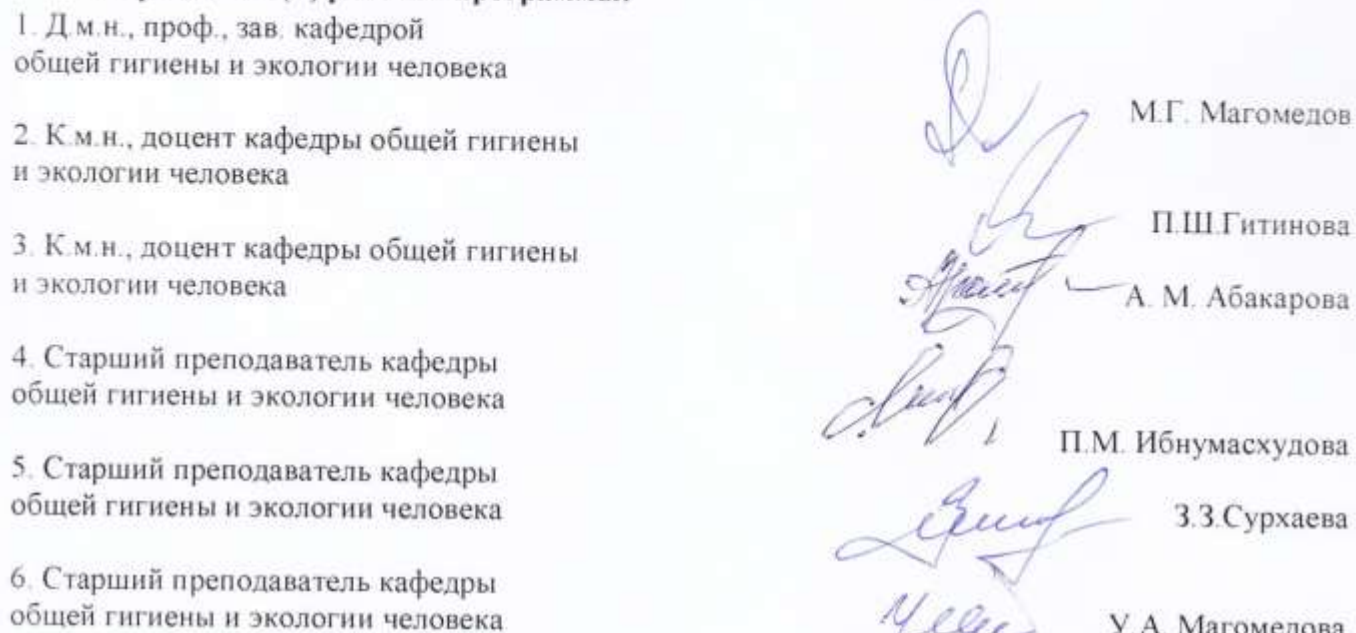 1. Д.м.н., проф., зав. кафедрой
общей гигиены и экологии человека
М.Г. Магомедов
2. К.м.н., доцент кафедры общей гигиены
и экологии человека
П.Ш.Гитинова
3. К.м.н., доцент кафедры общей гигиены
и экологии человека
А. М. Абакарова
4. Старший преподаватель кафедры
общей гигиены и экологии человека
П.М. Ибнумасхудова
5. Старший преподаватель кафедры
общей гигиены и экологии человека
З.З.Сурхаева
6. Старший преподаватель кафедры
общей гигиены и экологии человека
У.А. Магомедова